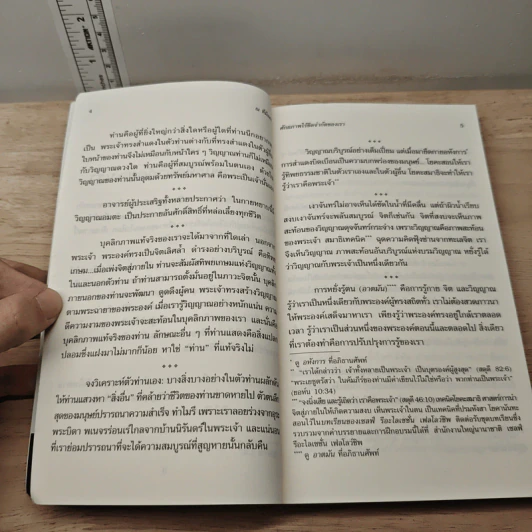 ท่านคือผู้ที่ยิ่งใหญ่กว่าสิ่งใดหรือผู้ใดที่ท่านนึกอยาก
เป็น พระเจ้าทรงสำแดงในตัวท่านต่างกับที่ทรงสำแดงในตัวผู้
ใบหน้าของท่านจึงไม่เหมือนกับหน้าใคร ๆ วิญญาณท่านก็ไม่เหมือ
กับวิญญาณดวงใด ท่านคือผู้ที่สมบูรณ์พร้อมในตนเอง
วิญญาณของท่านนั้นอุดมด้วยทรัพย์มหาศาล คือพระเป็นเจ้านั้น
* * *
อาจารย์ผู้ประเสริฐทั้งหลายประกาศว่า ในกายหยาบนี้
วิญญาณอมตะ เป็นประกายอันศักดิ์สิทธิ์ที่หล่อเลี้ยงทุกชีวิต
* * *
บุคลิกภาพแท้จริงของเราจะได้มาจากที่ใดเล่า นอกจาก
พระเจ้า พระองค์ทรงเป็นจิตเลิศล้ำ ดำรงอย่างบริบูรณ์ คือทิพย
เกษม...เมื่อเพ่งจิตสู่ภายใน ท่านจะสัมผัสทิพยเกษมแห่งวิญญาณทั้ง
ในและนอกตัวท่าน ถ้าท่านสามารถตั้งมั่นอยู่ในภาวะจิตนั้น บุคลิก
ภายนอกของท่านจะพัฒนา ดูดดึงผู้คน พระเจ้าทรงสร้างวิญญาณ
ตามพระฉายาของพระองค์ เมื่อเรารู้วิญญาณอย่างหนักแน่น ความ
ดีความงามของพระเจ้าจะสะท้อนในบุคลิกภาพของเรา และนั่นคือ
บุคลิกภาพแท้จริงของท่าน ลักษณะอื่น ๆ ที่ท่านแสดงคือสิ่งแปลก
ปลอมซึ่งแฝงมาไม่มากก็น้อย หาใช่ “ท่าน” ที่แท้จริงไม่
* * *
จงวิเคราะห์ตัวท่านเอง: บางสิ่งบางอย่างในตัวท่านผลักดัน
ให้ท่านแสวงหา “สิ่งอื่น” ที่คล้ายว่าชีวิตของท่านขาดหายไป ตัวตนลึก
สุดของมนุษย์ปรารถนาความสำเร็จ ทำไมรึ เพราะเราลอยร่วงจากอุระ
พระบิดา พเนจรร่อนเร่ไกลจากบ้านนิรันดร์ในพระเจ้า และแน่นอน
ที่เราย่อมปรารถนาที่จะได้ความสมบูรณ์ที่สูญหายนั้นกลับคืน
* * *
วิญญาณบริบูรณ์อย่างเต็มเปี่ยม แต่เมื่อมาชีตกายอหังการ*
การสำแดงบิดเบือนเป็นความบกพร่องของมนุษย์... โยคะสอนให้เรา
รู้ทิพยธรรมชาติในตัวเราเองและในตัวผู้อื่น โยคะสมาธิจะทำให้เรา
รู้ว่าเราคือพระเจ้า**
* * *
เงาจันทร์ไม่อาจเห็นได้ชัดในน้ำที่มีคลื่น แต่ถ้าผิวน้ำเรียบ
สงบเงาจันทร์จะเพลินสมบูรณ์ จิตก็เช่นกัน จิตที่สงบจะเห็นภาพ
สะท้อนของวิญญาณดุจจันทร์กระจ่าง เพราะวิญญาณคือภาพสะท้อน
ของพระเจ้า สมาธิเทคนิค*** ฉุดความคิดฟุ้งซ่านจากทะเลจิต เรา
จึงเห็นวิญญาณ ภาพสะท้อนอันบริบูรณ์แห่งบรมวิญญาณ หยั่งรู้ได้
ว่าวิญญาณกับพระเจ้าเป็นหนึ่งเดียวกัน
* * *
การหยั่งรู้ตน (อาตมัน)**** คือการรู้กาย จิต และวิญญาณ
รู้ว่าเราเป็นหนึ่งเดียวกับพระองค์ผู้ทรงสถิตทั่ว เราไม่ต้องสวดภาวนา
ให้พระองค์เสด็จมาหาเรา เพียงรู้ว่าพระองค์ทรงอยู่ใกล้เราตลอด
เวลา รู้ว่าเราเป็นส่วนหนึ่งของพระองค์ตอนนี้และตลอดไป สิ่งเดียว
ที่เราต้องทำคือการปรับปรุงการรู้ของเรา
* ดู อหังการ ที่อภิธานศัพท์
** “เราได้กล่าวว่า เจ้าทั้งหลายเป็นพระเจ้า เป็นบุตรองค์ผู้สูงสุด” (สดุดี 82:6)
(ยอห์น 10:34)
*** “จงนิ่งเสีย และรู้เถิดว่า เราคือพระเจ้า” (สดุดี 46:10)
**** ดู อาตมัน ที่อภิธานศัพท์